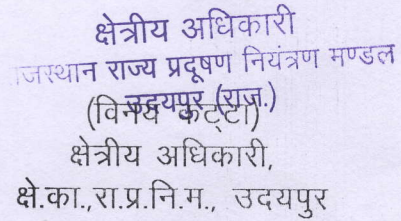 क्षेत्रीय अधिकारी
राजस्थान राज्य प्रदूषण नियंत्रण मण्डल
उदयपुर (राज.)
(विनय कट्टा)
क्षेत्रीय अधिकारी,
क्षे.का.,रा.प्र.नि.म., उदयपुर